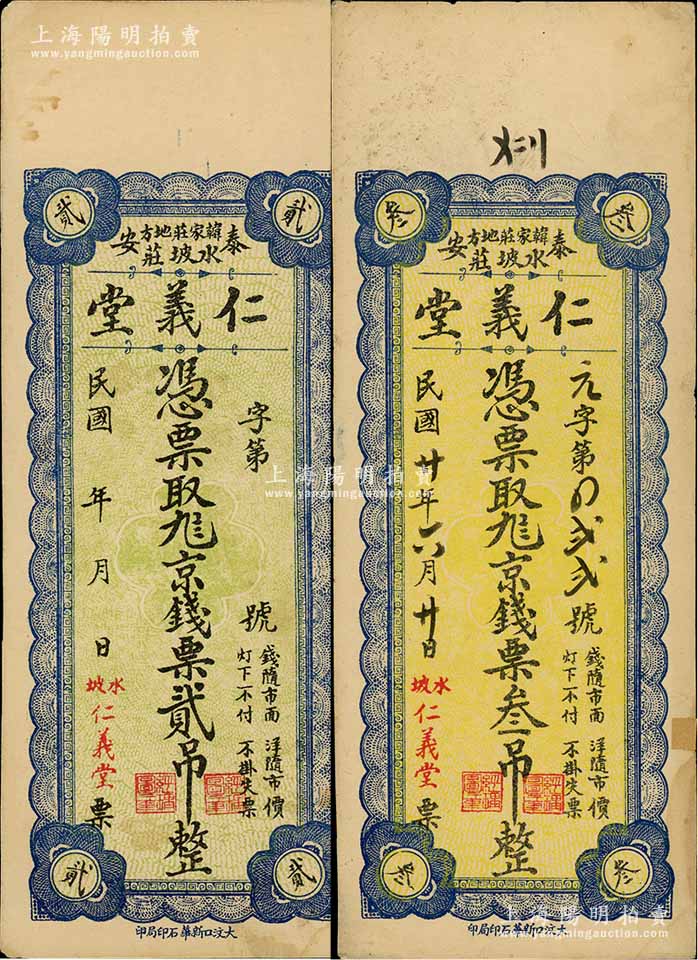 上海陽明拍賣
www.yangmingauction.com
貳
貳
韓家莊地方
泰安
水坡莊
仁義堂
字第 號
憑票取九京錢票貳吊整
民國 年 月 日
錢隨市面 洋隨市價
灯下不付 不掛失票
水坡仁義堂票
貳
貳
大汶口新華石印局印
叁
叁
韓家莊地方
泰安
水坡莊
仁義堂
元字第0弍弍號
憑票取九京錢票叁吊整
民國廿年六月廿日
錢隨市面 洋隨市價
灯下不付 不掛失票
水坡仁義堂票
叁
叁
大汶口新華石印局印
上海陽明拍賣
www.yangmingauction.com
上海陽明拍賣
www.yangmingauction.com